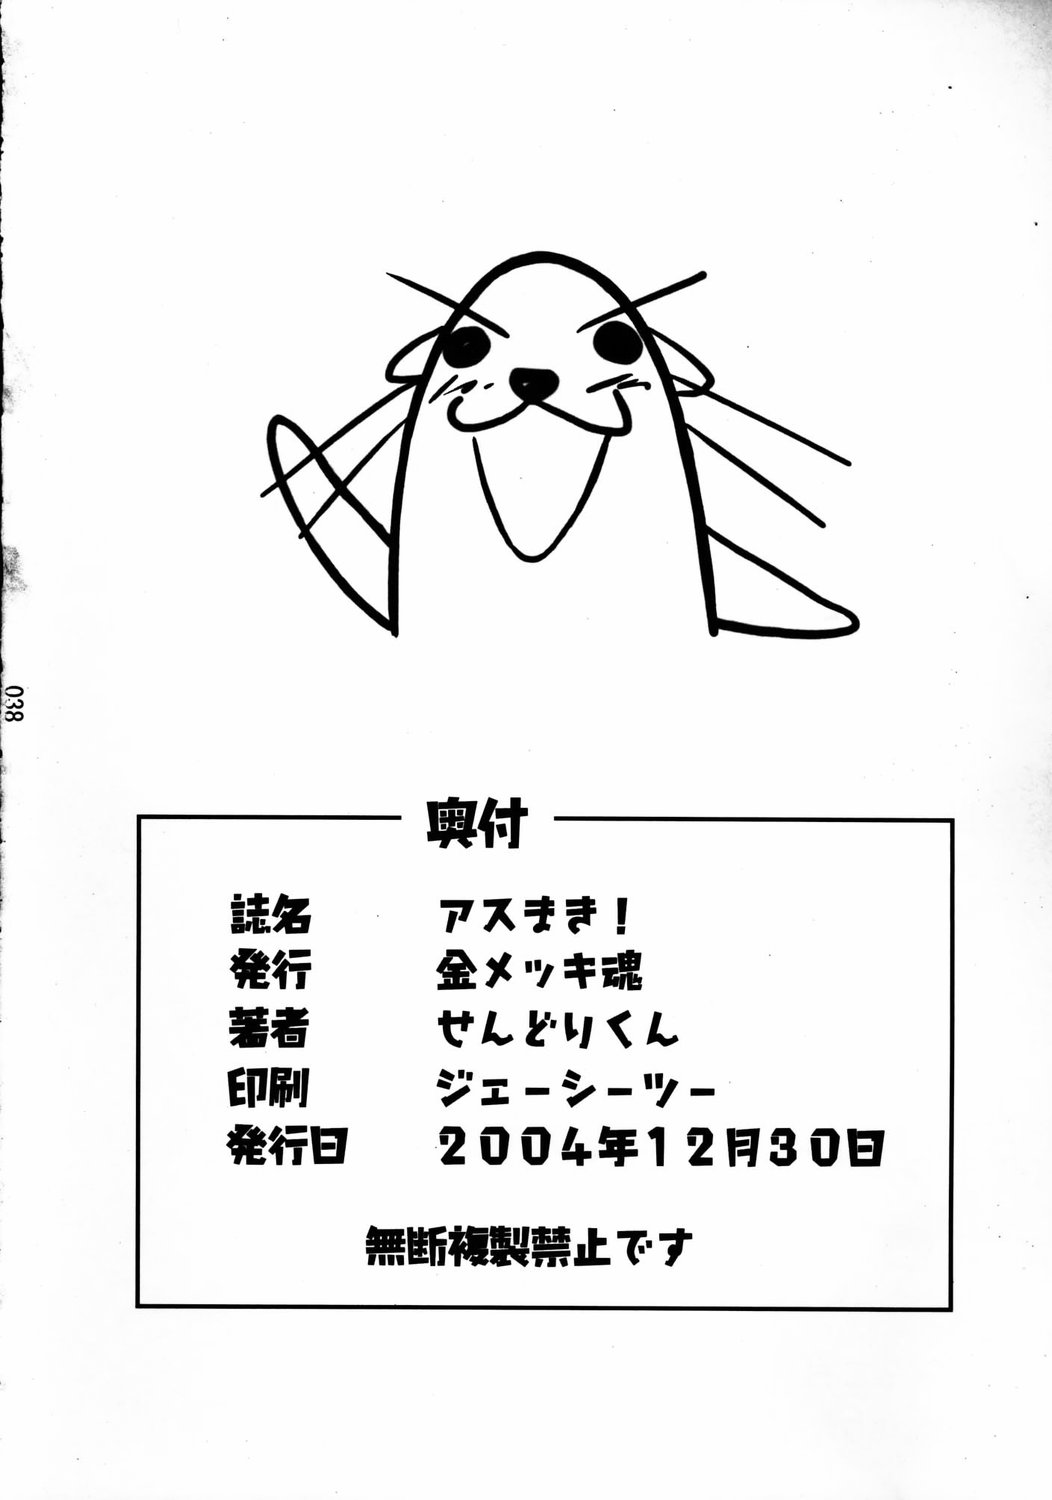 038
奥付
誌名 アスまき！
発行 金メッキ魂
著者 せんどりくん
印刷 ジェーシーツー
発行日 2004年12月30日
無断複製禁止です